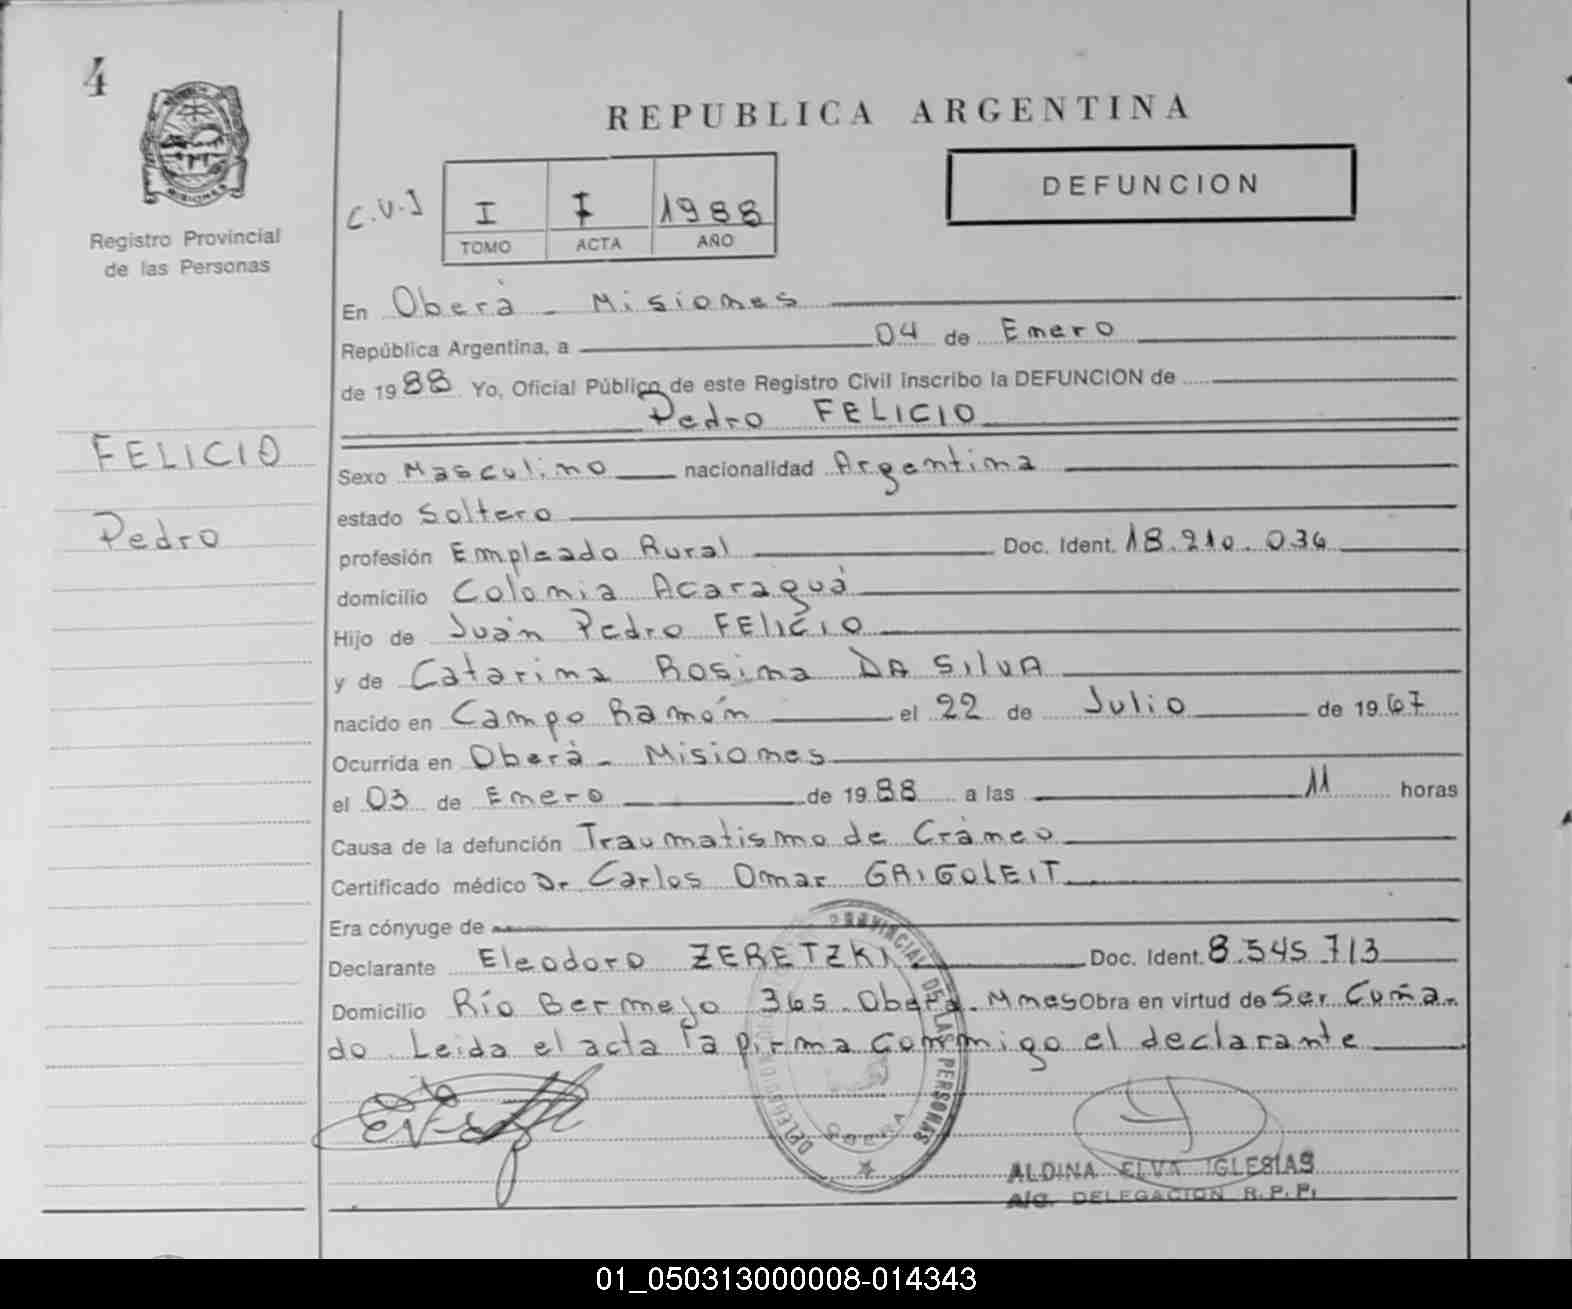 4
MISIONES
Registro Provincial
de las Personas
FELICIO
Pedro
REPUBLICA ARGENTINA
DEFUNCION
C.V.I
I 7 1988
TOMO ACTA AÑO
En Oberá - Misiones
República Argentina, a 04 de Enero
de 1988 Yo, Oficial Público de este Registro Civil inscribo la DEFUNCION de
Pedro FELICIO
Sexo Masculino nacionalidad Argentina
estado Soltero
profesión Empleado Rural Doc. Ident. 18.210.036
domicilio Colonia Acaraguá
Hijo de Juan Pedro FELICIO
y de Catarina Rosina DA SILVA
nacido en Campo Ramón el 22 de Julio de 1967
Ocurrida en Oberá - Misiones
el 03 de Enero de 1988 a las 11 horas
Causa de la defunción Traumatismo de Cráneo
Certificado médico Dr Carlos Omar GRIGOLEIT
Era cónyuge de
Declarante Eleodoro ZERETZKI Doc. Ident. 8.545.713
Domicilio Río Bermejo 365 - Oberá - Mnes Obra en virtud de Ser Cuña-
do. Leida el acta la firma conmigo el declarante
PROVINCIAL DE LAS PERSONAS
DELEGACION
OBERA
ALDINA ELVA IGLESIAS
A/C. DELEGACION R.P.P.
01_050313000008-014343